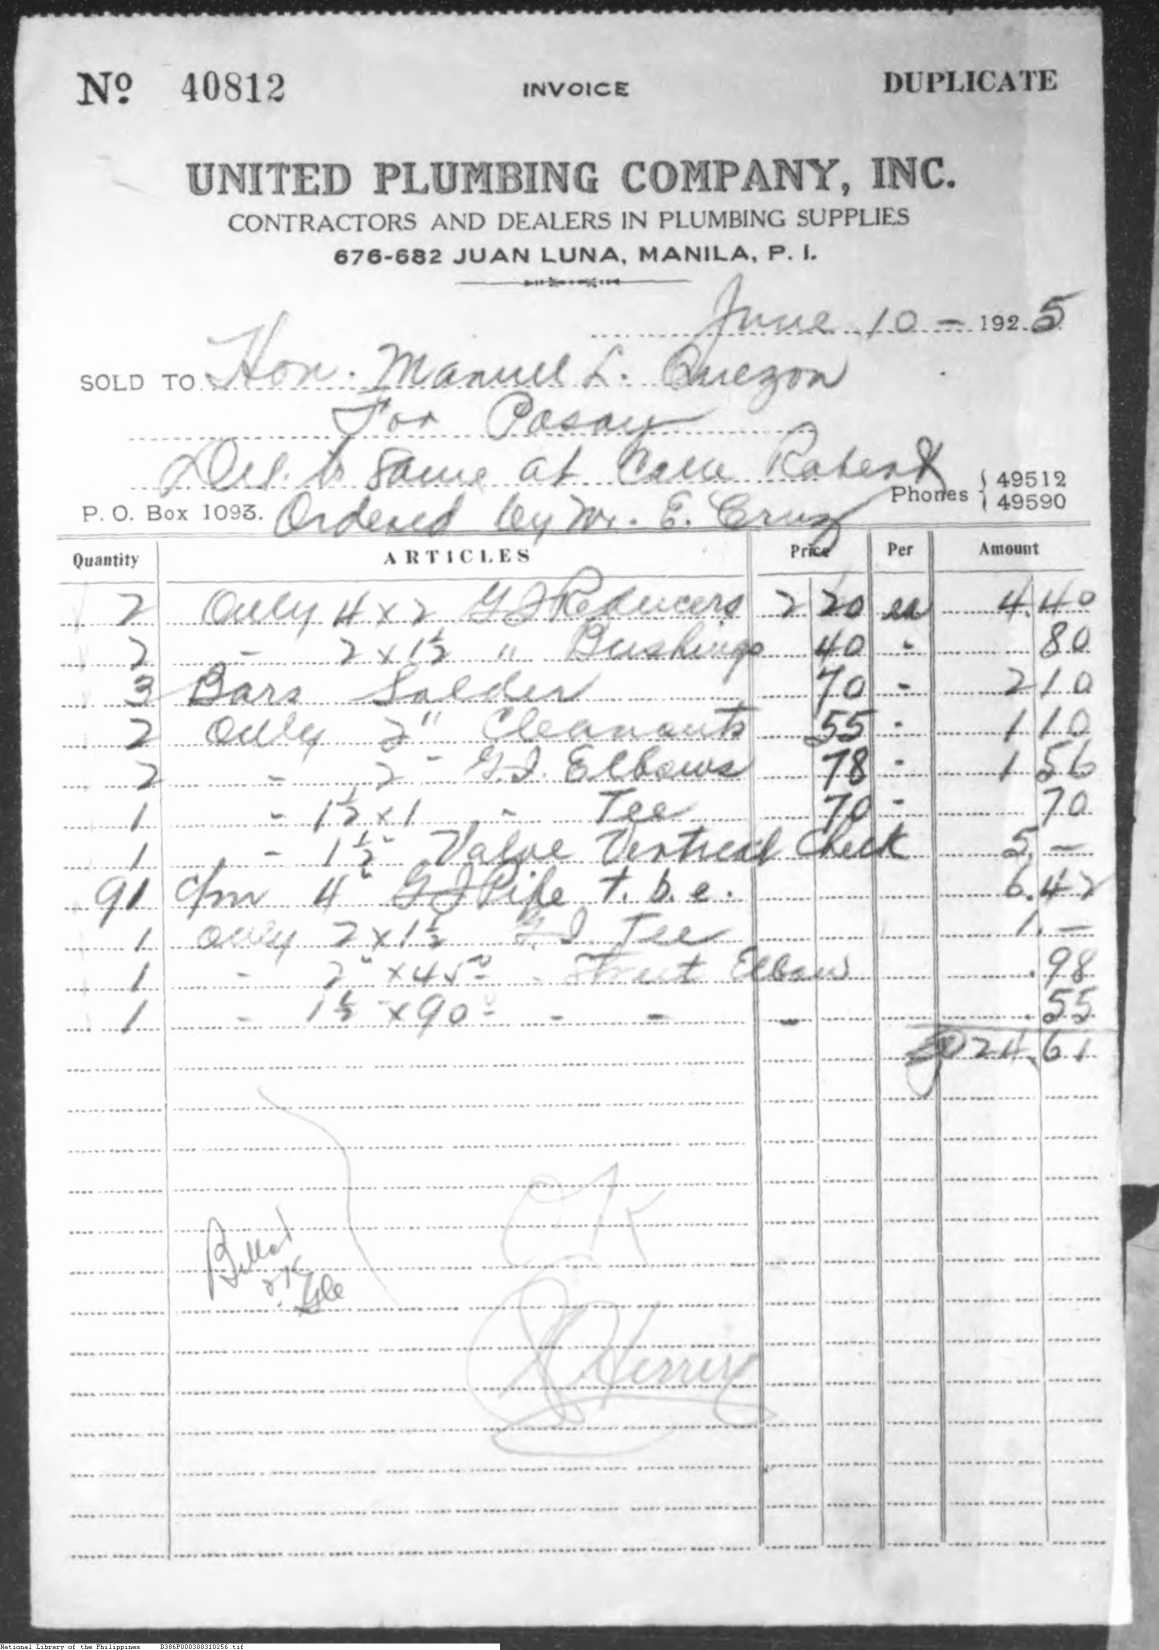 Nº 40812 INVOICE DUPLICATE
UNITED PLUMBING COMPANY, INC.
CONTRACTORS AND DEALERS IN PLUMBING SUPPLIES
676-682 JUAN LUNA, MANILA, P. I.
June 10 - 1925
SOLD TO Hon. Manuel L. Quezon
For Pasay
Del. to Same at Calle Roberts
Phones { 49512
{ 49590
P. O. Box 1093. Ordered by Mr. E. Cruz
Quantity ARTICLES Price Per Amount
2 Only 4 x 2 G I Reducers 2 20 ea 4.40
2 - 2 x 1½ " Bushings 40 - 80
3 Bars Solder 70 - 2 10
2 Only 2" Cleanouts 55 - 1 10
2 - 2" G.I. Elbows 78 - 1 56
1 - 1½ x 1 - Tee 70 - 70
1 - 1½" Valve Vertical Check 5. -
91 c/m 4" G I Pipe t. b. e. 6.42
1 Only 2 x 1½ G I Tee 1. -
1 - 2" x 45º - Street Elbow .98
1 - 1½" x 90º - - - .55
24.61
OK
National Library of the Philippines B386P000300310256.tif